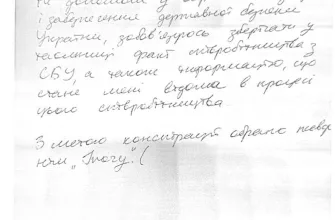 і забезпечення державної безпеки
України, зобов'язуюсь зберігати у
таємниці факт співробітництва з
СБУ, а також інформацію, що
стане мені відома в процесі
цього співробітництва
З метою конспірації обираю псевдо-
нім „